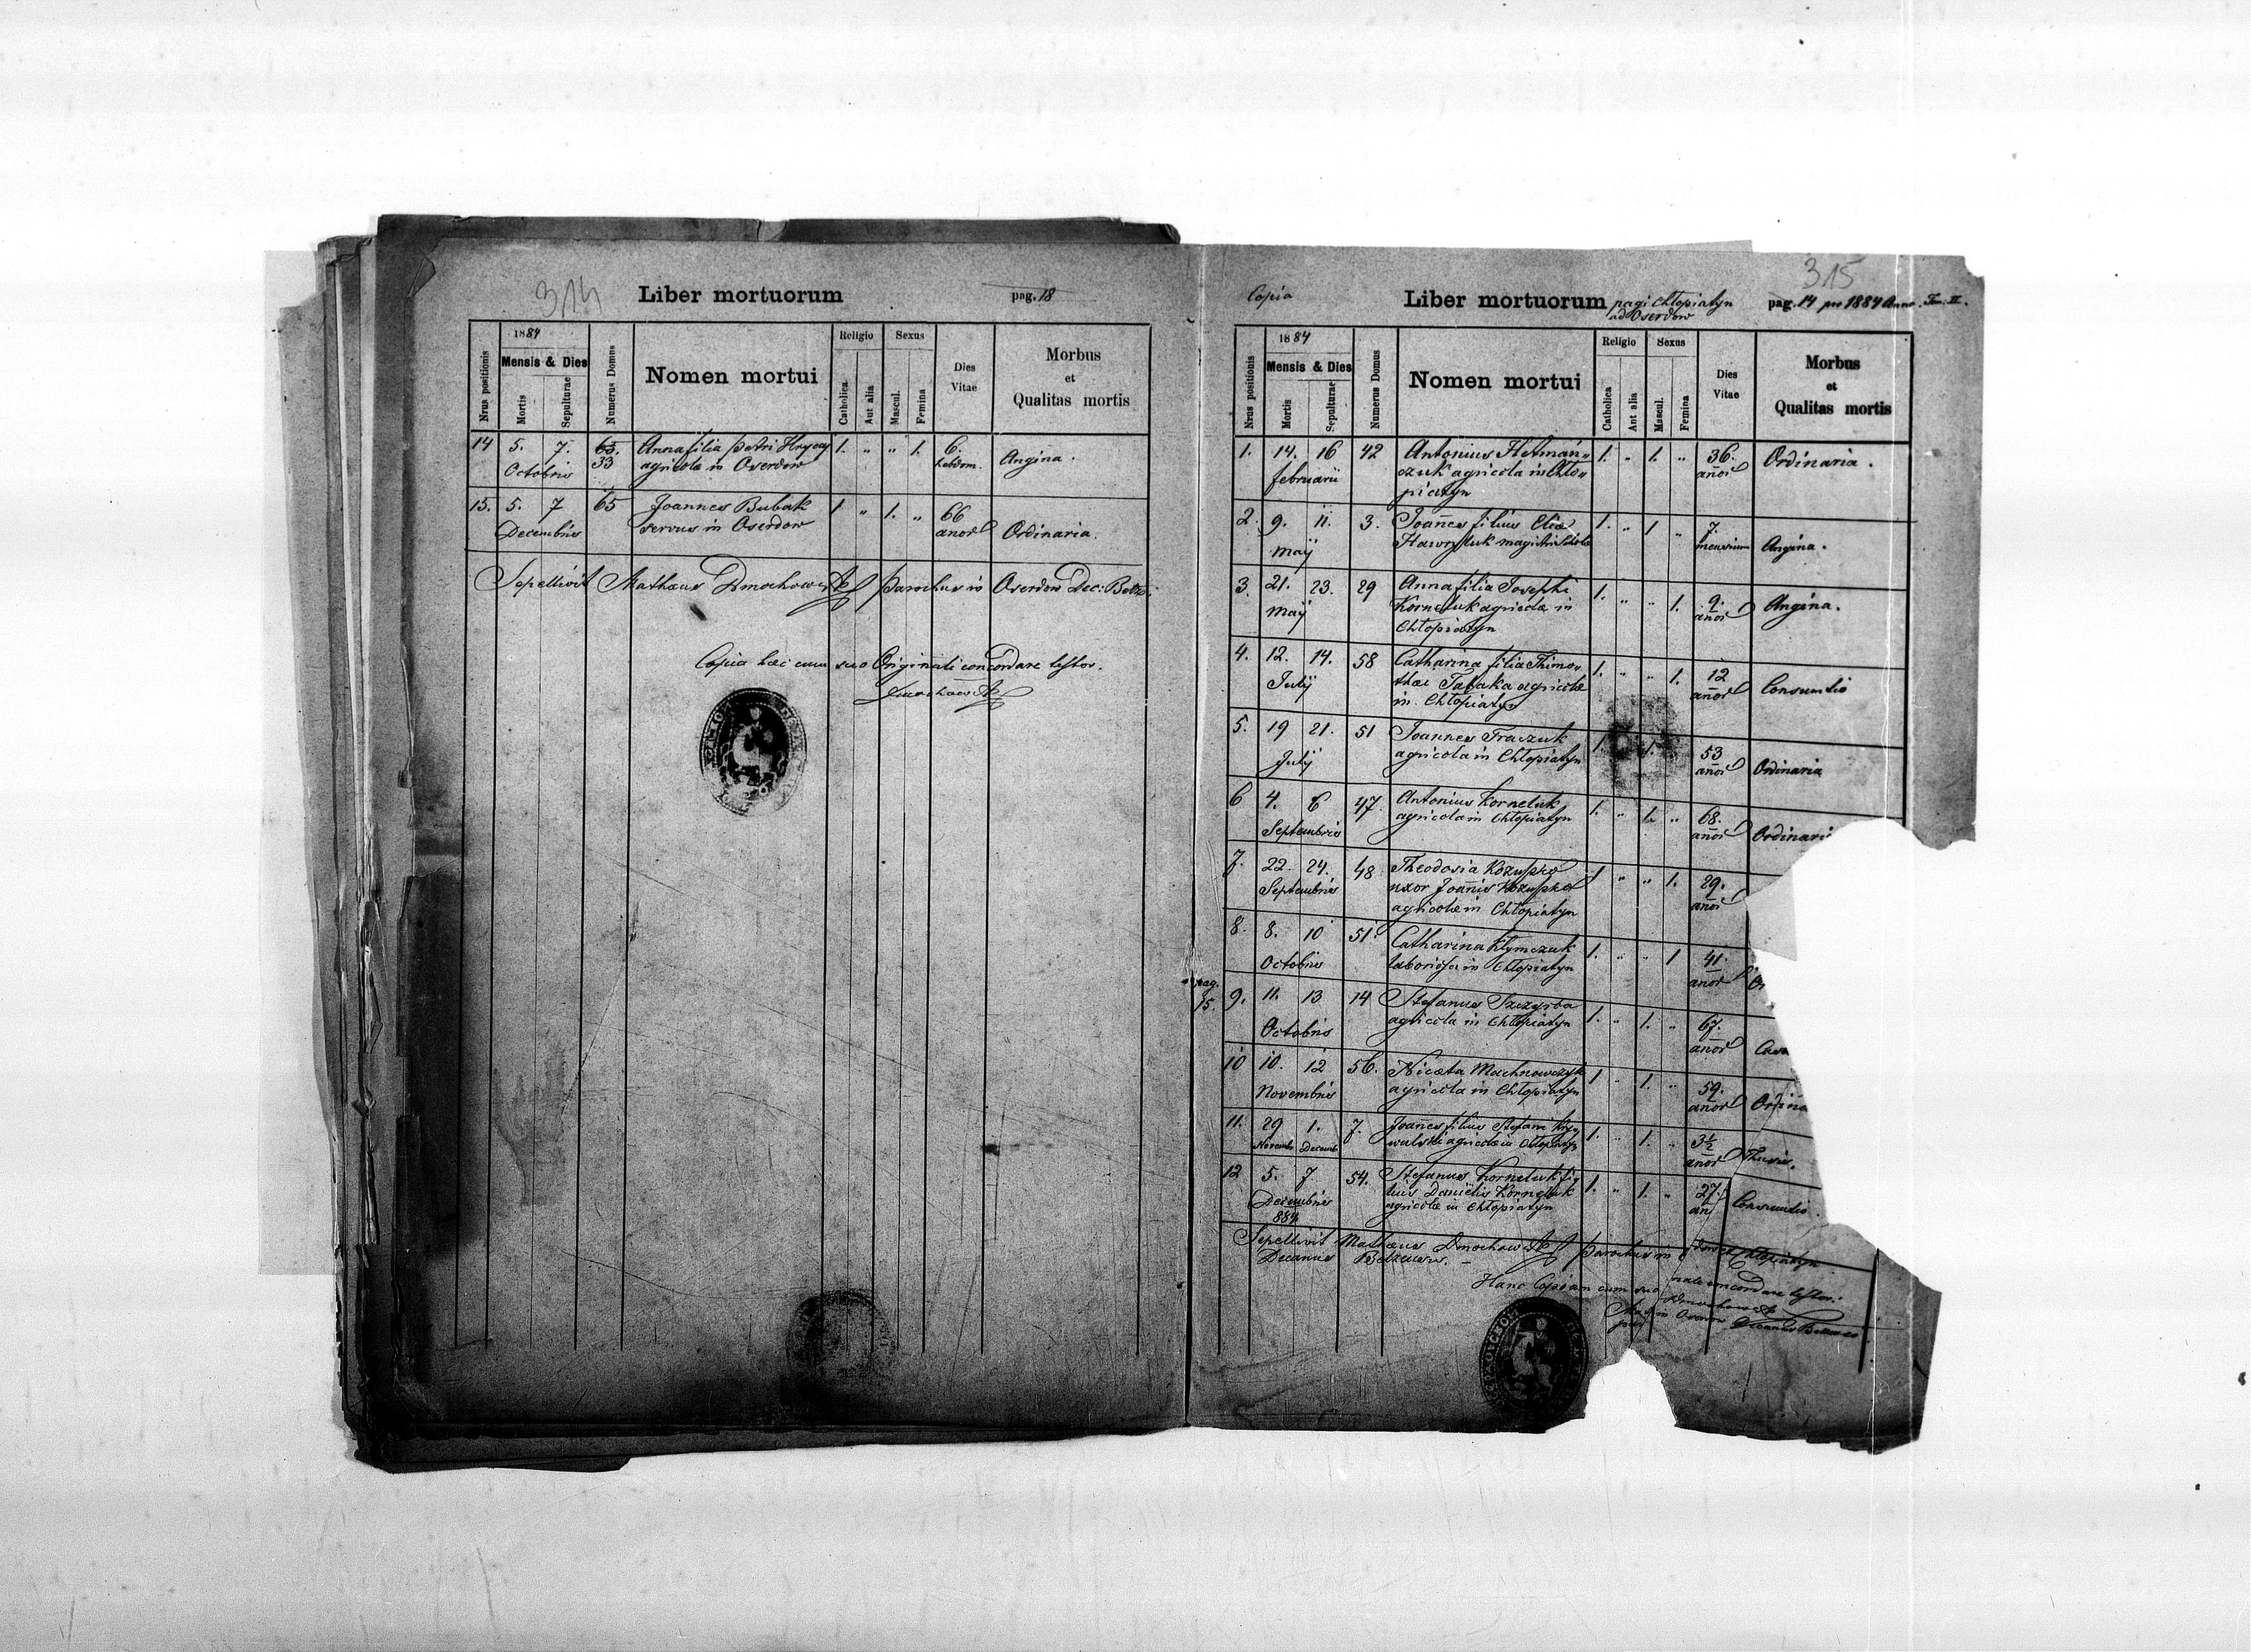 314
Liber mortuorum pag. 18
Nrus positionis
1884
Mensis & Dies
Mortis
Sepulturae
Numerus Domus
Nomen mortui
Religio
Catholica
Aut alia
Sexus
Mascul.
Femina
Dies Vitae
Morbus et Qualitas mortis
14 5. 7. 65. Anna filia Petri Hrycaj 1. " " 1. 6. Angina.
Octobris 33 agricolae in Oserdow hebdom.
15. 5. 7 65 Joannes Bubak 1 " 1. " 66 Ordinaria.
Decembris servus in Oserdow anor
Sepellivit Mathaeus Dmochowski Parochus in Oserdow Dec: Belz:
Copia haec cum suo Originali concordare testor.
Dmochowski
315
Copia
Liber mortuorum pagi Chłopiatyn pag. 14 pro 1884 Anno. Tom. II.
ad Oserdow
Nrus positionis
1884
Mensis & Dies
Mortis
Sepulturae
Numerus Domus
Nomen mortui
Religio
Catholica
Aut alia
Sexus
Mascul.
Femina
Dies Vitae
Morbus et Qualitas mortis
1. 14. 16 42 Antonius Hetmań" 1. " 1. " 36. Ordinaria.
februarii czuk agricola in Chło" anor
piatyn
2. 9. 11. 3. Joannes filius Eliae 1. " 1 " 7. Angina.
Maij magistri scholae mensium
3. 21. 23. 29 Anna filia Josephi 1. " " 1. 9. Angina.
Maij Korneluk agricolae in anor
Chłopiatyn
4. 12. 14. 58 Catharina filia Thimo" 1. " " 1. 12 Consumtio
Julij thei Tabaka agricolae anor
in Chłopiatyn
5. 19 21. 51 Joannes Traczuk 1. 1. 53 Ordinaria
Julij agricola in Chłopiatyn anor
6 4. 6 47. Antonius Korneluk 1. " 1. " 68. Ordinari
Septembris agricola in Chłopiatyn anor
7. 22. 24. 48 Theodosia Kozupko 1 " " 1. 29.
Septembris uxor Joannis Kozupko anor
agricolae in Chłopiatyn
8. 8. 10 51. Catharina Klymczuk 1. " " 1 41.
Octobris laboriosa in Chłopiatyn anor
pag. 15.
9. 11. 13 14 Stefanus Szczyrba 1. " 1. " 67.
Octobris agricola in Chłopiatyn anor
10 10. 12 56. Niceta Machnowczyk 1 " 1. " 59. Ordina
Novembris agricola in Chłopiatyn anor
11. 29 1. 7. Joannes filius Stefani 1. " 1. " 3½ Thusis.
Novemb. Decemb. agricolae in Chłopiatyn anor
12 5. 7 54. Stefanus Korneluk fi" 1. " 1. " 27. Consumtio.
Decembris lius Danielis Korneluk an
884 agricolae in Chłopiatyn
Sepellivit Mathaeus Dmochowski Parochus in Chłopiatyn
Decanus Belzensis.
Hanc Copiam cum suo nali concordare testor.
Dmochowski
in Oserdow Decanus Belzensis